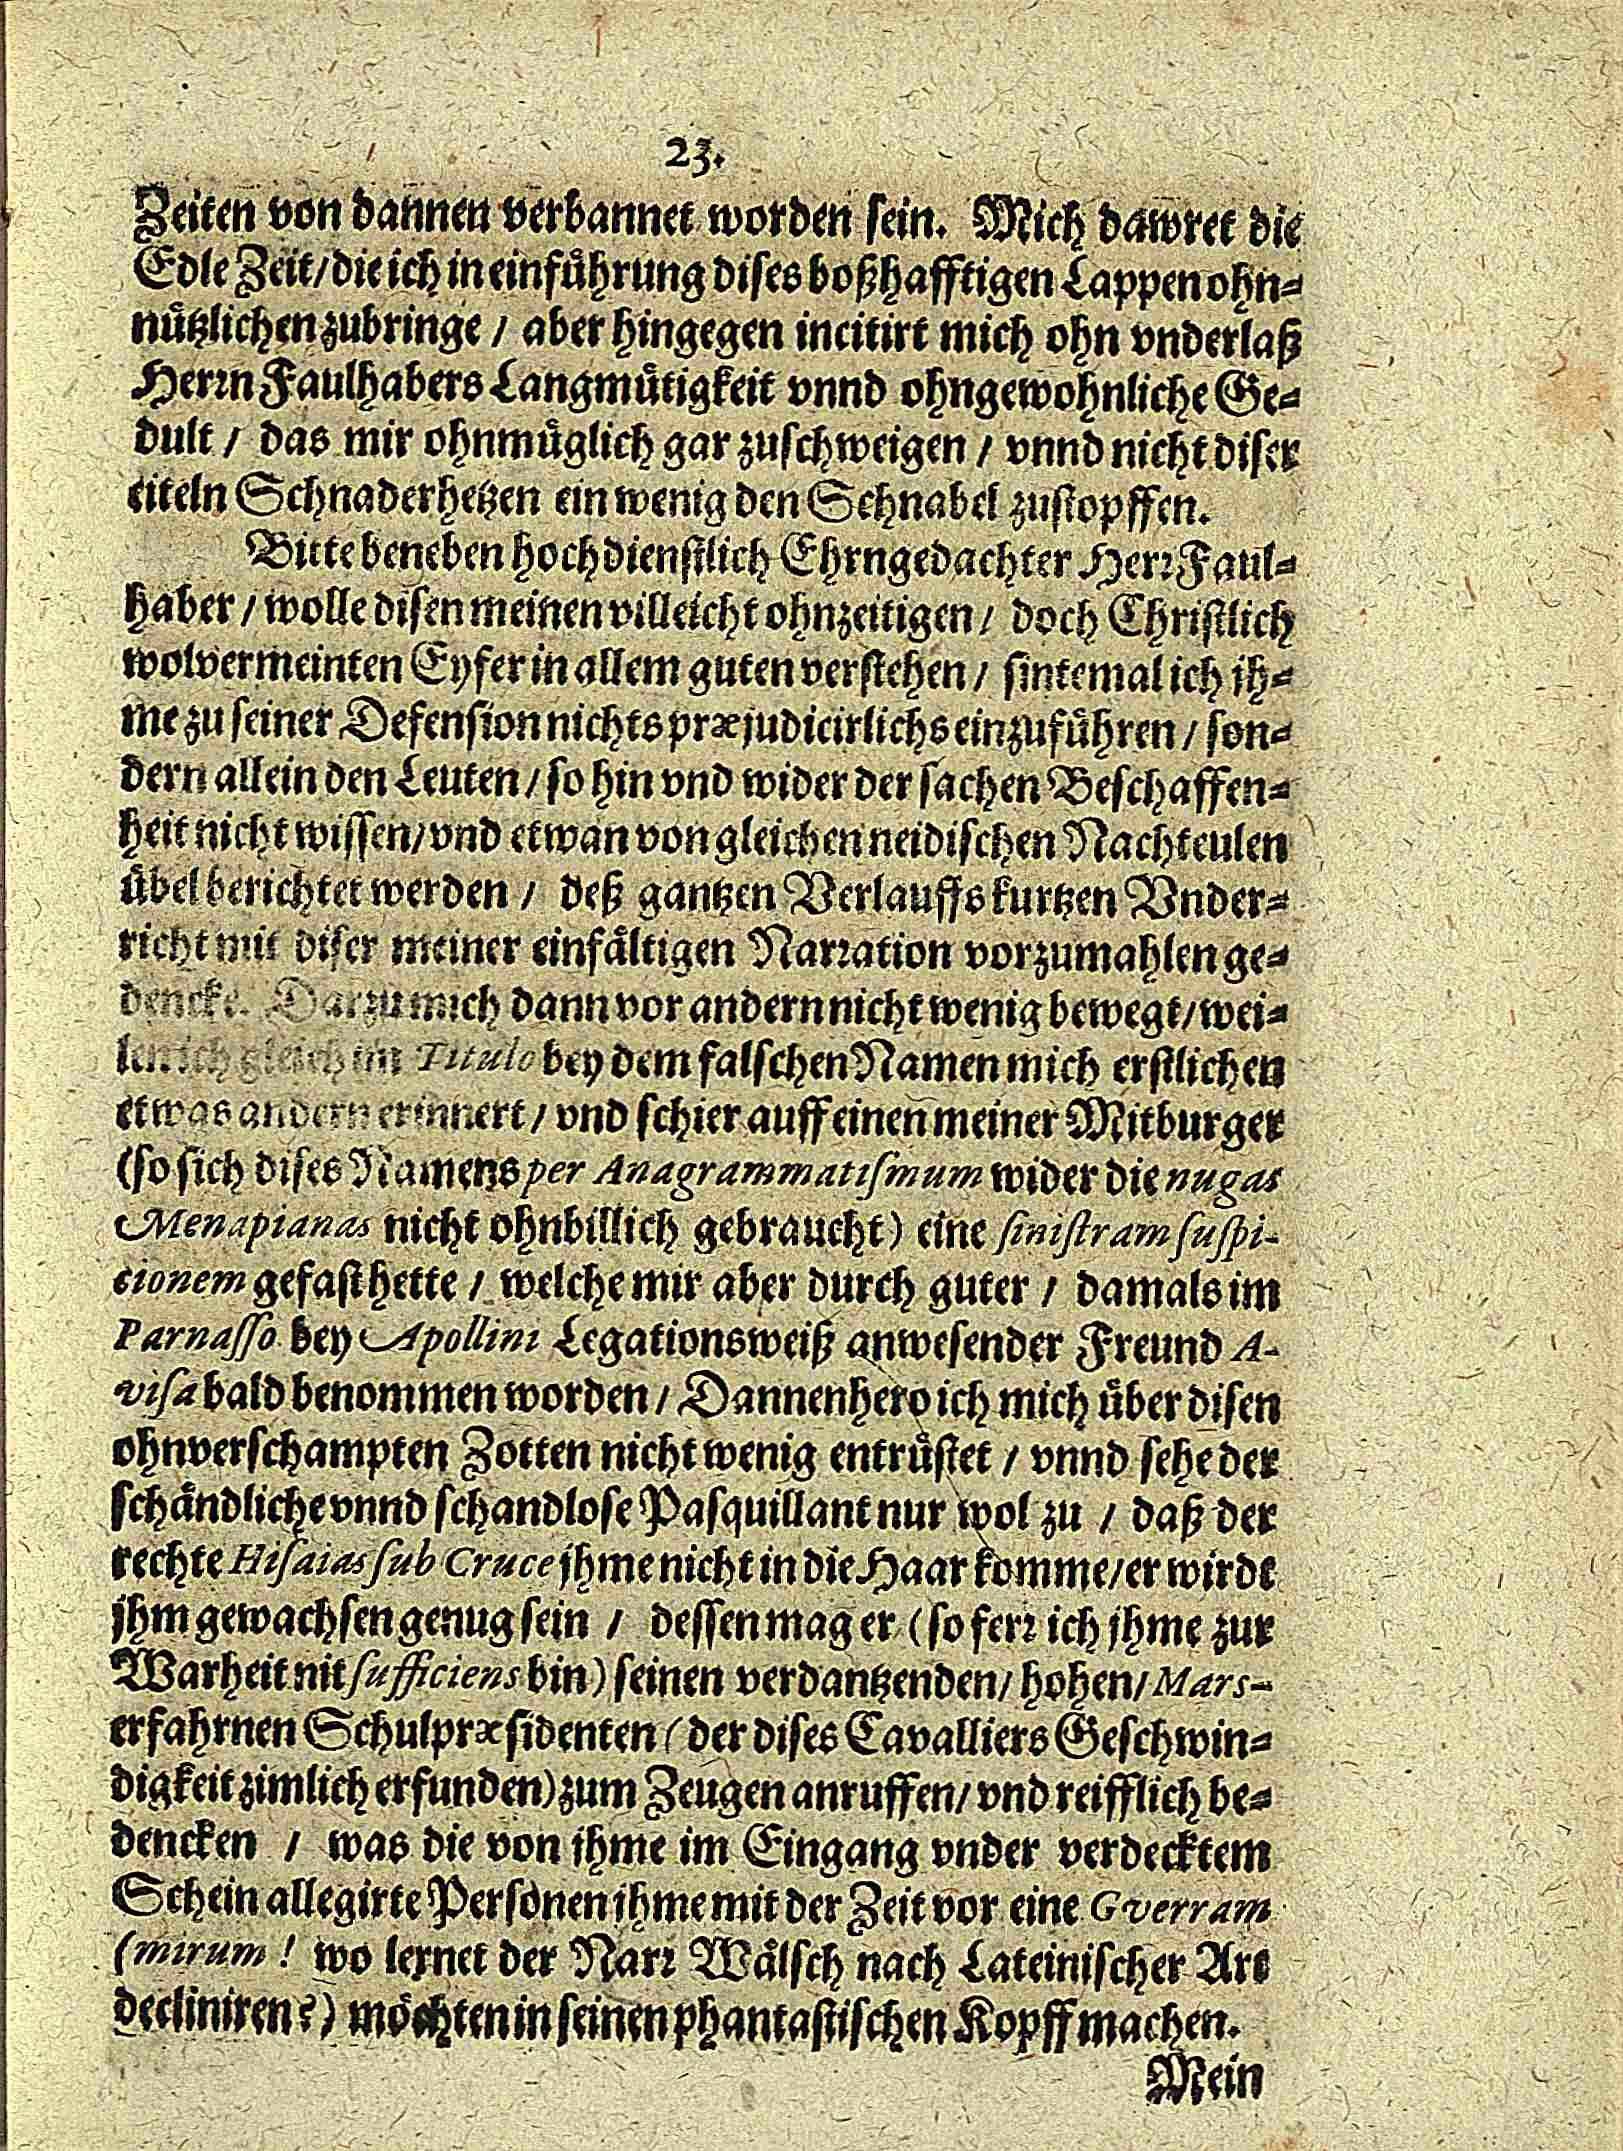 23.
Zeiten von dannen verbannet worden sein. Mich dawret die
Edle Zeit / die ich in einführung dises boßhafftigen Lappen ohn-
nützlichen zubringe / aber hingegen incitirt mich ohn vnderlaß
Herrn Faulhabers Langmütigkeit vnnd ohngewohnliche Ge-
dult / das mir ohnmüglich gar zuschweigen / vnnd nicht diser
eiteln Schnaderhetzen ein wenig den Schnabel zustopffen.
Bitte beneben hochdienstlich Ehrngedachter Herr Faul-
haber / wolle disen meinen villeicht ohnzeitigen / doch Christlich
wolvermeinten Eyfer in allem guten verstehen / sintemal ich jh-
me zu seiner Defension nichts præjudicirlichs einzuführen / son-
dern allein den Leuten / so hin vnd wider der sachen Beschaffen-
heit nicht wissen / vnd etwan von gleichen neidischen Nachteulen
übel berichtet werden / deß gantzen Verlauffs kurtzen Vnder-
richt mit diser meiner einfältigen Narration vorzumahlen ge-
dencke. Darzu mich dann vor andern nicht wenig bewegt / wei-
len ich gleich im Titulo bey dem falschen Namen mich erstlichen
etwas andern erinnert / vnd schier auff einen meiner Mitburger
(so sich dises Namens per Anagrammatismum wider die nugas
Menapianas nicht ohnbillich gebraucht) eine sinistram suspi-
cionem gefast hette / welche mir aber durch guter / damals im
Parnasso bey Apollini Legationsweiß anwesender Freund A-
visa bald benommen worden / Dannenhero ich mich über disen
ohnverschampten Zotten nicht wenig entrüstet / vnnd sehe der
schändliche vnnd schandlose Pasquillant nur wol zu / daß der
rechte Hisaias sub Cruce jhme nicht in die Haar komme / er wirdt
jhm gewachsen genug sein / dessen mag er (so ferr ich jhme zur
Warheit nit sufficiens bin) seinen verdantzenden / hohen / Mars-
erfahrnen Schulpræsidenten (der dises Cavalliers Geschwin-
digkeit zimlich erfunden) zum Zeugen anruffen / vnd reifflich be-
dencken / was die von jhme im Eingang vnder verdecktem
Schein allegirte Personen jhme mit der Zeit vor eine Gverram
(mirum! wo lernet der Narr Wälsch nach Lateinischer Art
decliniren?) möchten in seinen phantastischen Kopff machen.
Mein